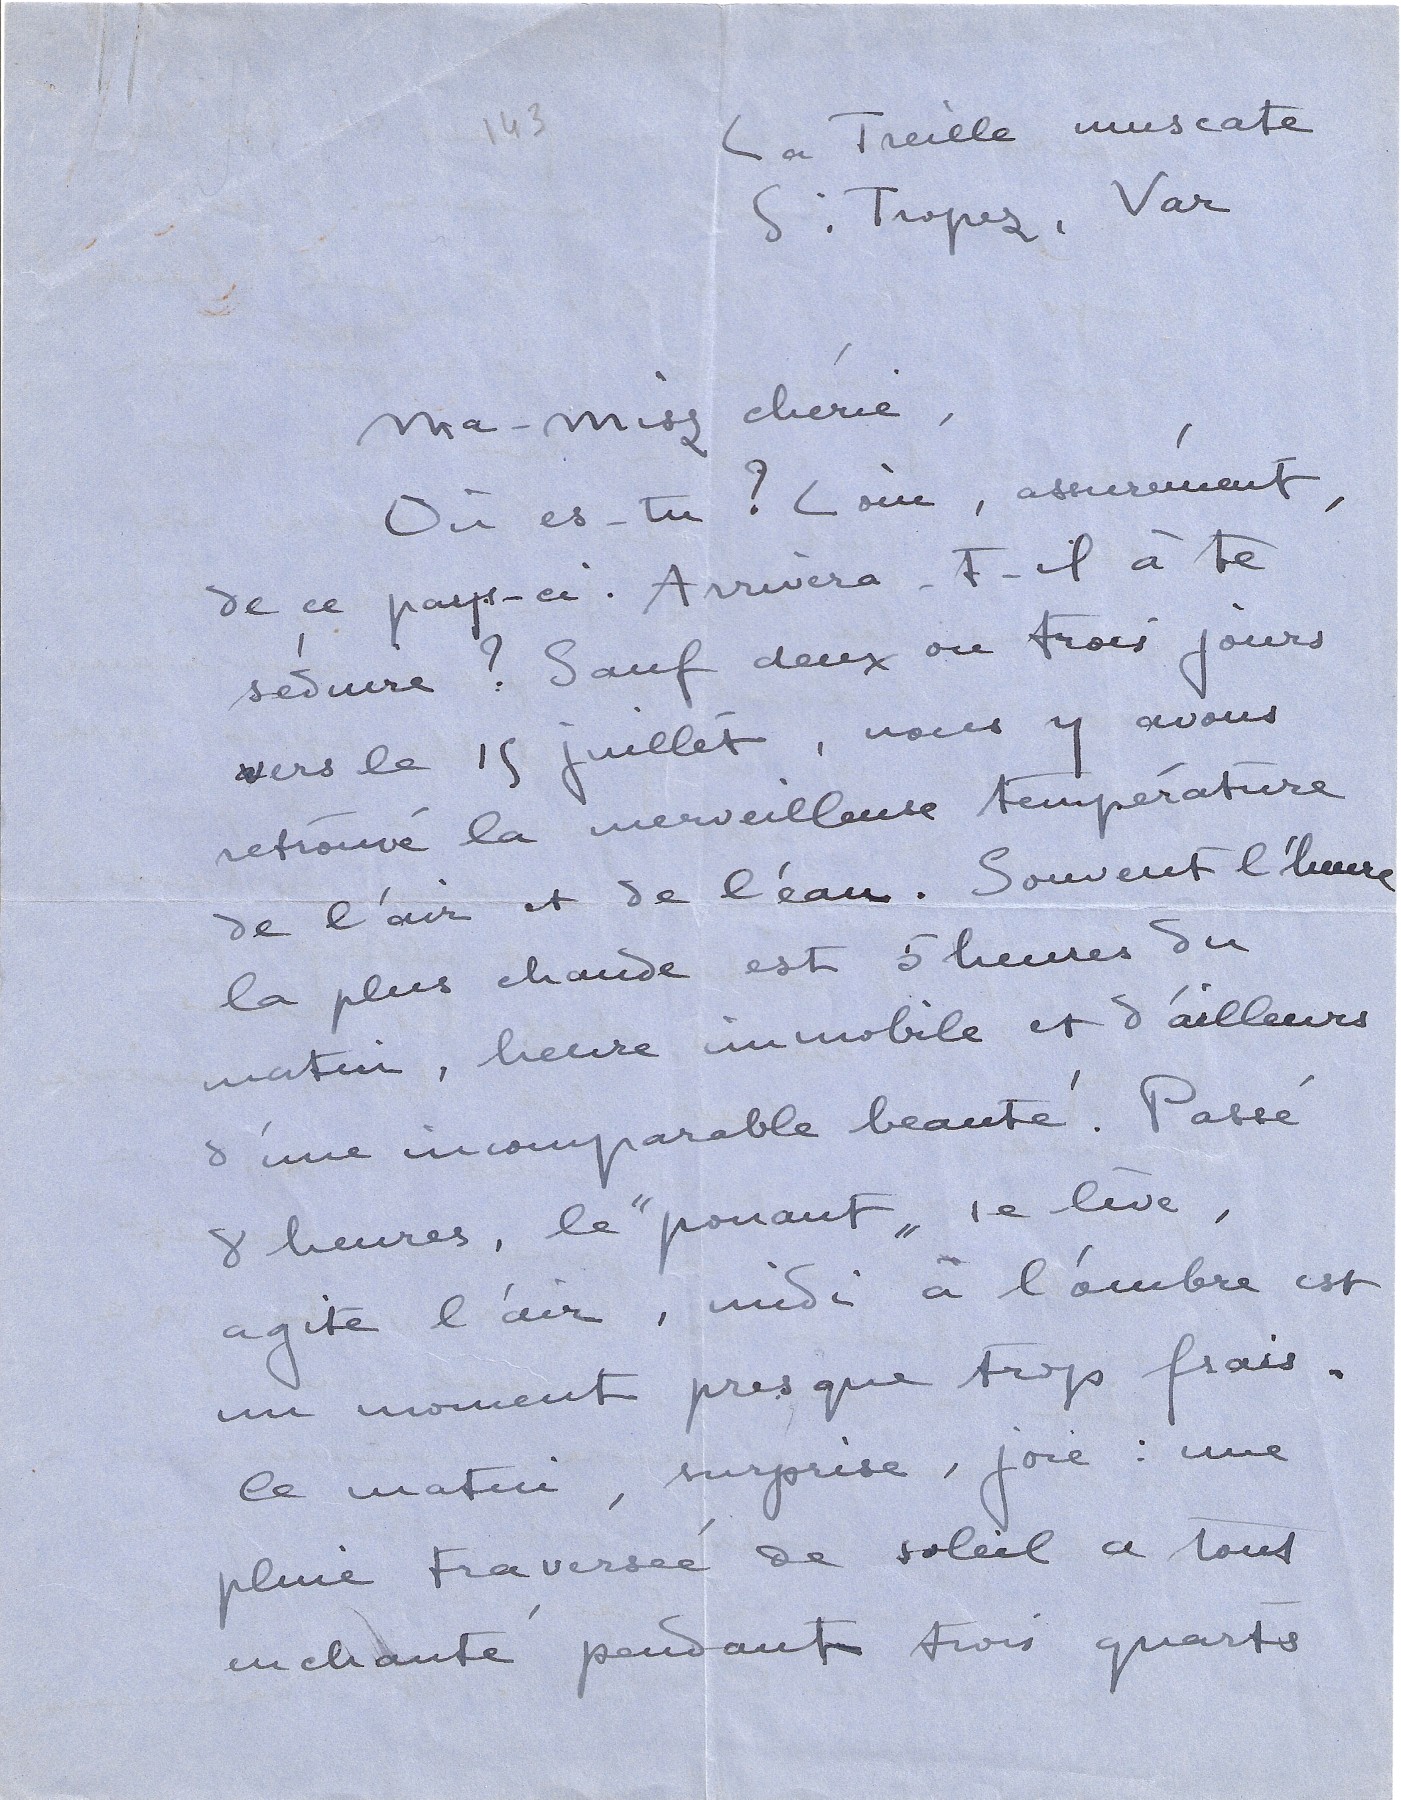 143
La Treille muscate
St. Tropez, Var
Ma-Missz chérie,
Où es-tu ? Loin, assurément,
de ce pays-ci. Arrivera-t-il à te
séduire ? Sauf deux ou trois jours
vers le 15 juillet, nous y avons
retrouvé la merveilleuse température
de l'air et de l'eau. Souvent l'heure
la plus chaude est 5 heures du
matin, heure immobile et d'ailleurs
d'une incomparable beauté. Passé
8 heures, le "ponant" se lève,
agite l'air, midi à l'ombre est
un moment presque trop frais.
Ce matin, surprise, joie : une
pluie traversée de soleil a tout
enchanté pendant trois quarts